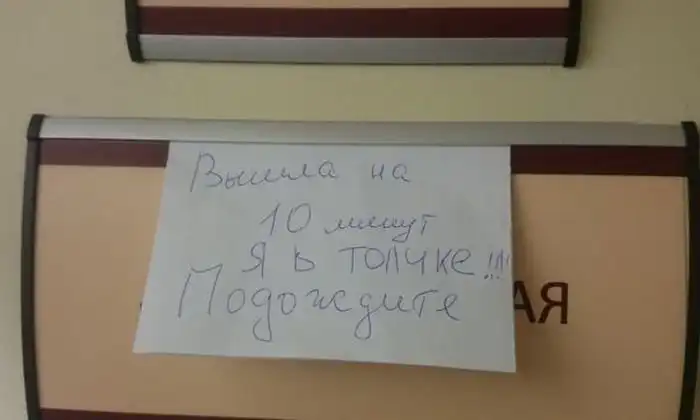 Вышла на
10 минут
Я в толчке!!!
Подождите
АЯ